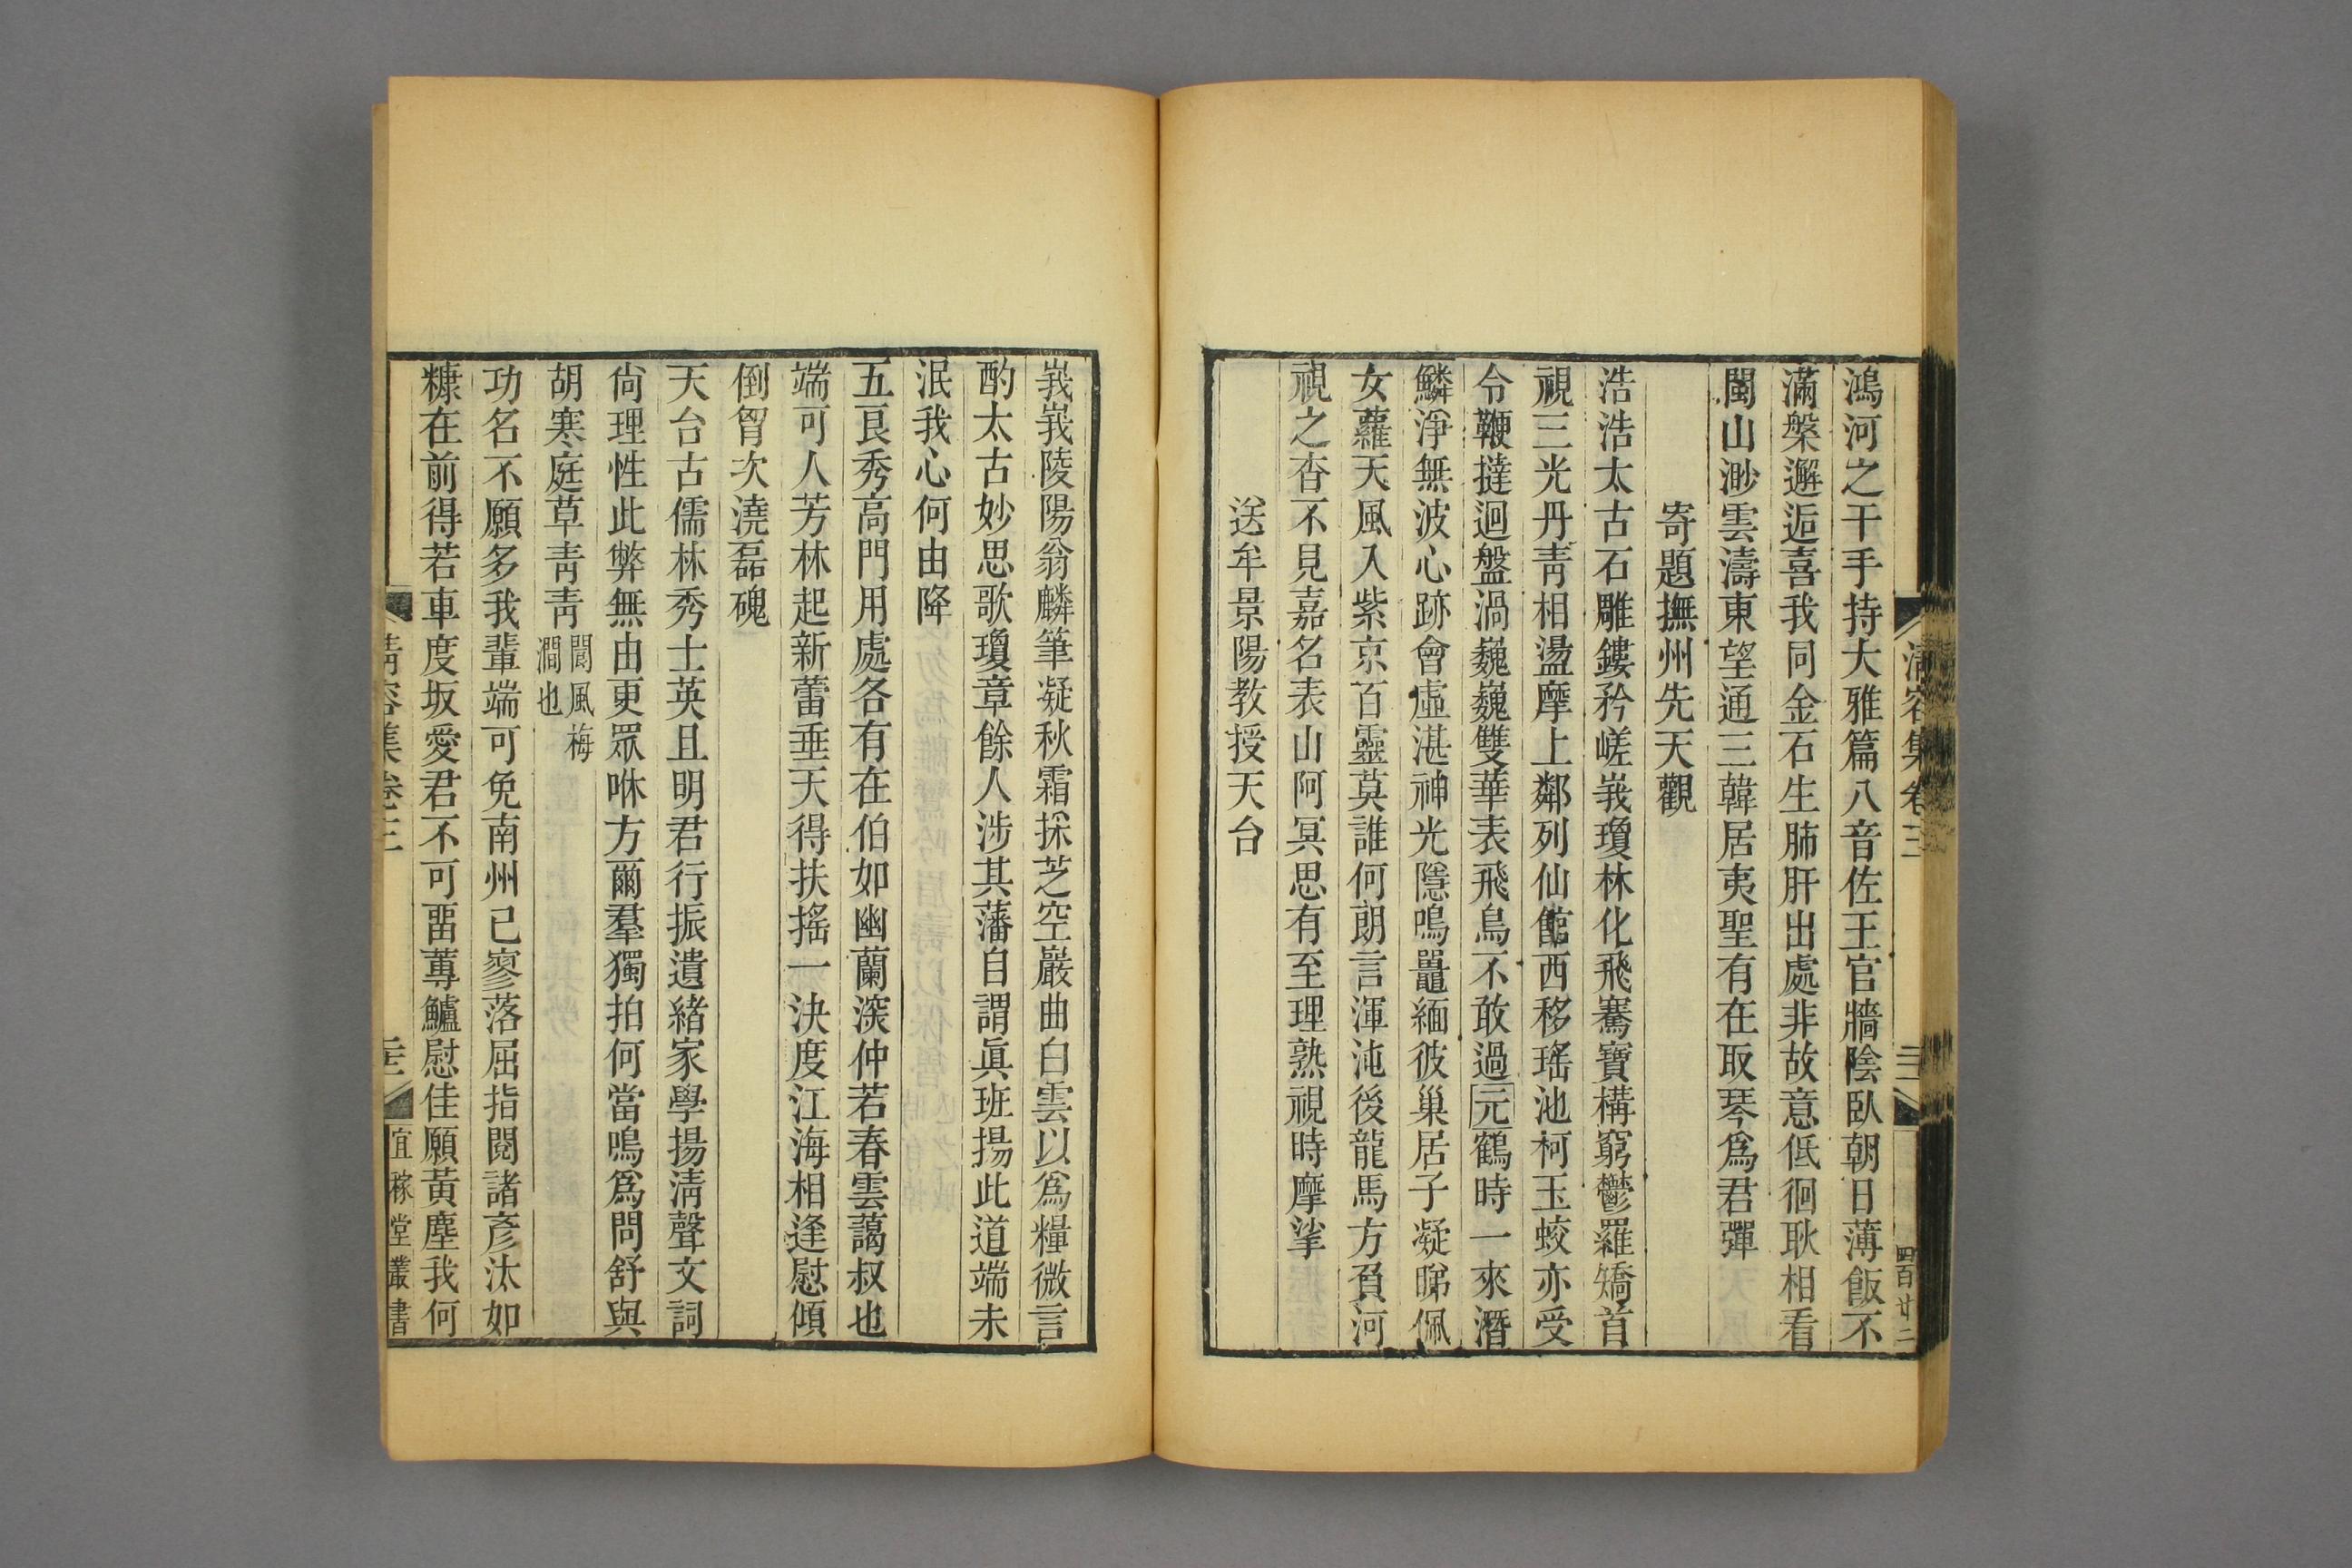 清容集卷三
鴻河之干手持大雅篇八音佐王官牆陰臥朝日薄飯不
滿槃邂逅喜我同金石生肺肝出處非故意低徊耿相看
閩山渺雲濤東望通三韓居夷聖有在取琴爲君彈
寄題撫州先天觀
浩浩太古石雕鏤矜嵯峩瓊林化飛騫寶構窮鬱羅矯首
視三光丹靑相盪摩上鄰列仙館西移瑤池柯玉蛟亦受
令鞭撻迴盤渦巍巍雙華表飛鳥不敢過元鶴時一來潛
鱗淨無波心跡會虛湛神光隱鳴鼉緬彼巢居子凝睇佩
女蘿天風入紫京百靈莫誰何朗言渾沌後龍馬方負河
視之杳不見嘉名表山阿冥思有至理熟視時摩挲
送牟景陽教授天台
峩峩陵陽翁麟筆凝秋霜採芝空巖曲白雲以爲糧微言
酌太古妙思歌瓊章餘人涉其藩自謂眞班揚此道端未
泯我心何由降
五㫰秀高門用處各有在伯如幽蘭深仲若春雲藹叔也
端可人芳林起新蕾垂天得扶搖一決度江海相逢慰傾
倒胷次澆磊磈
天台古儒林秀士英且明君行振遺緒家學揚淸聲文詞
尙理性此弊無由更眾咻方爾羣獨拍何當鳴爲問舒與
胡寒庭草靑靑閬風梅
澗也
功名不願多我輩端可免南州已寥落屈指閱諸彥汰如
糠在前得若車度坂愛君不可畱蓴鱸慰佳願黃塵我何
清容集卷三
宜稼堂叢書